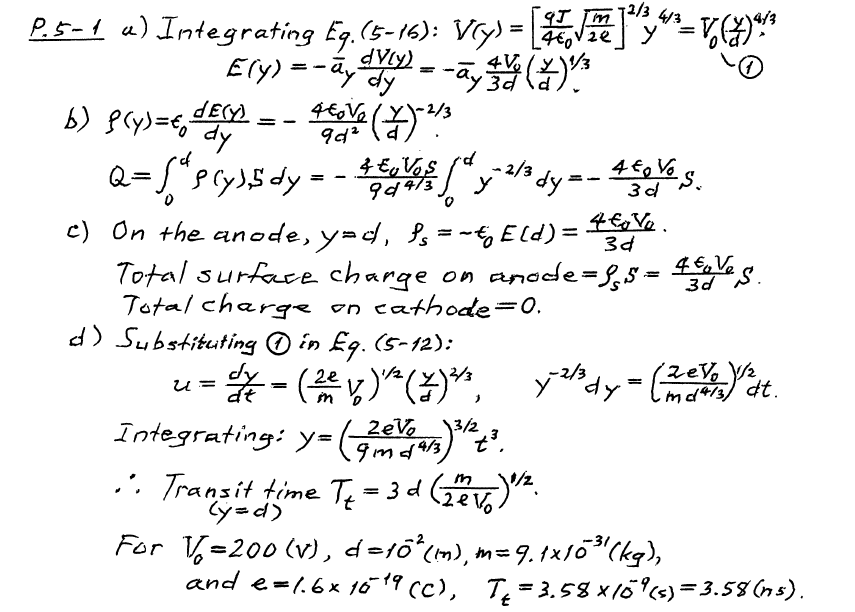 P.5-1 a) Integrating Eq.(5-16): V(y) = [9J/4ϵ₀ √(m/2e)]^{2/3} y^{4/3} = V₀(y/d)^{4/3}. ①
E(y) = -ā_y dV(y)/dy = -ā_y 4V₀/3d (y/d)^{1/3}.
b) ρ(y) = ϵ₀ dE(y)/dy = - 4ϵ₀V₀/9d² (y/d)^{-2/3}.
Q = ∫₀^d ρ(y) S dy = - 4ϵ₀V₀S/9d^{4/3} ∫₀^d y^{-2/3} dy = - 4ϵ₀V₀/3d S.
c) On the anode, y=d, ρ_s = -ϵ₀ E(d) = 4ϵ₀V₀/3d.
Total surface charge on anode = ρ_s S = 4ϵ₀V₀/3d S.
Total charge on cathode = 0.
d) Substituting ① in Eq. (5-12):
u = dy/dt = (2e/m V₀)^{1/2} (y/d)^{2/3}, y^{-2/3} dy = (2eV₀/md^{4/3})^{1/2} dt.
Integrating: y = (2eV₀/9md^{4/3})^{3/2} t³.
∴ Transit time T_t = 3d (m/2eV₀)^{1/2}.
(y=d)
For V₀ = 200 (V), d = 10^{-2} (m), m = 9.1 x 10^{-31} (kg),
and e = 1.6 x 10^{-19} (C), T_t = 3.58 x 10^{-9} (s) = 3.58 (ns).